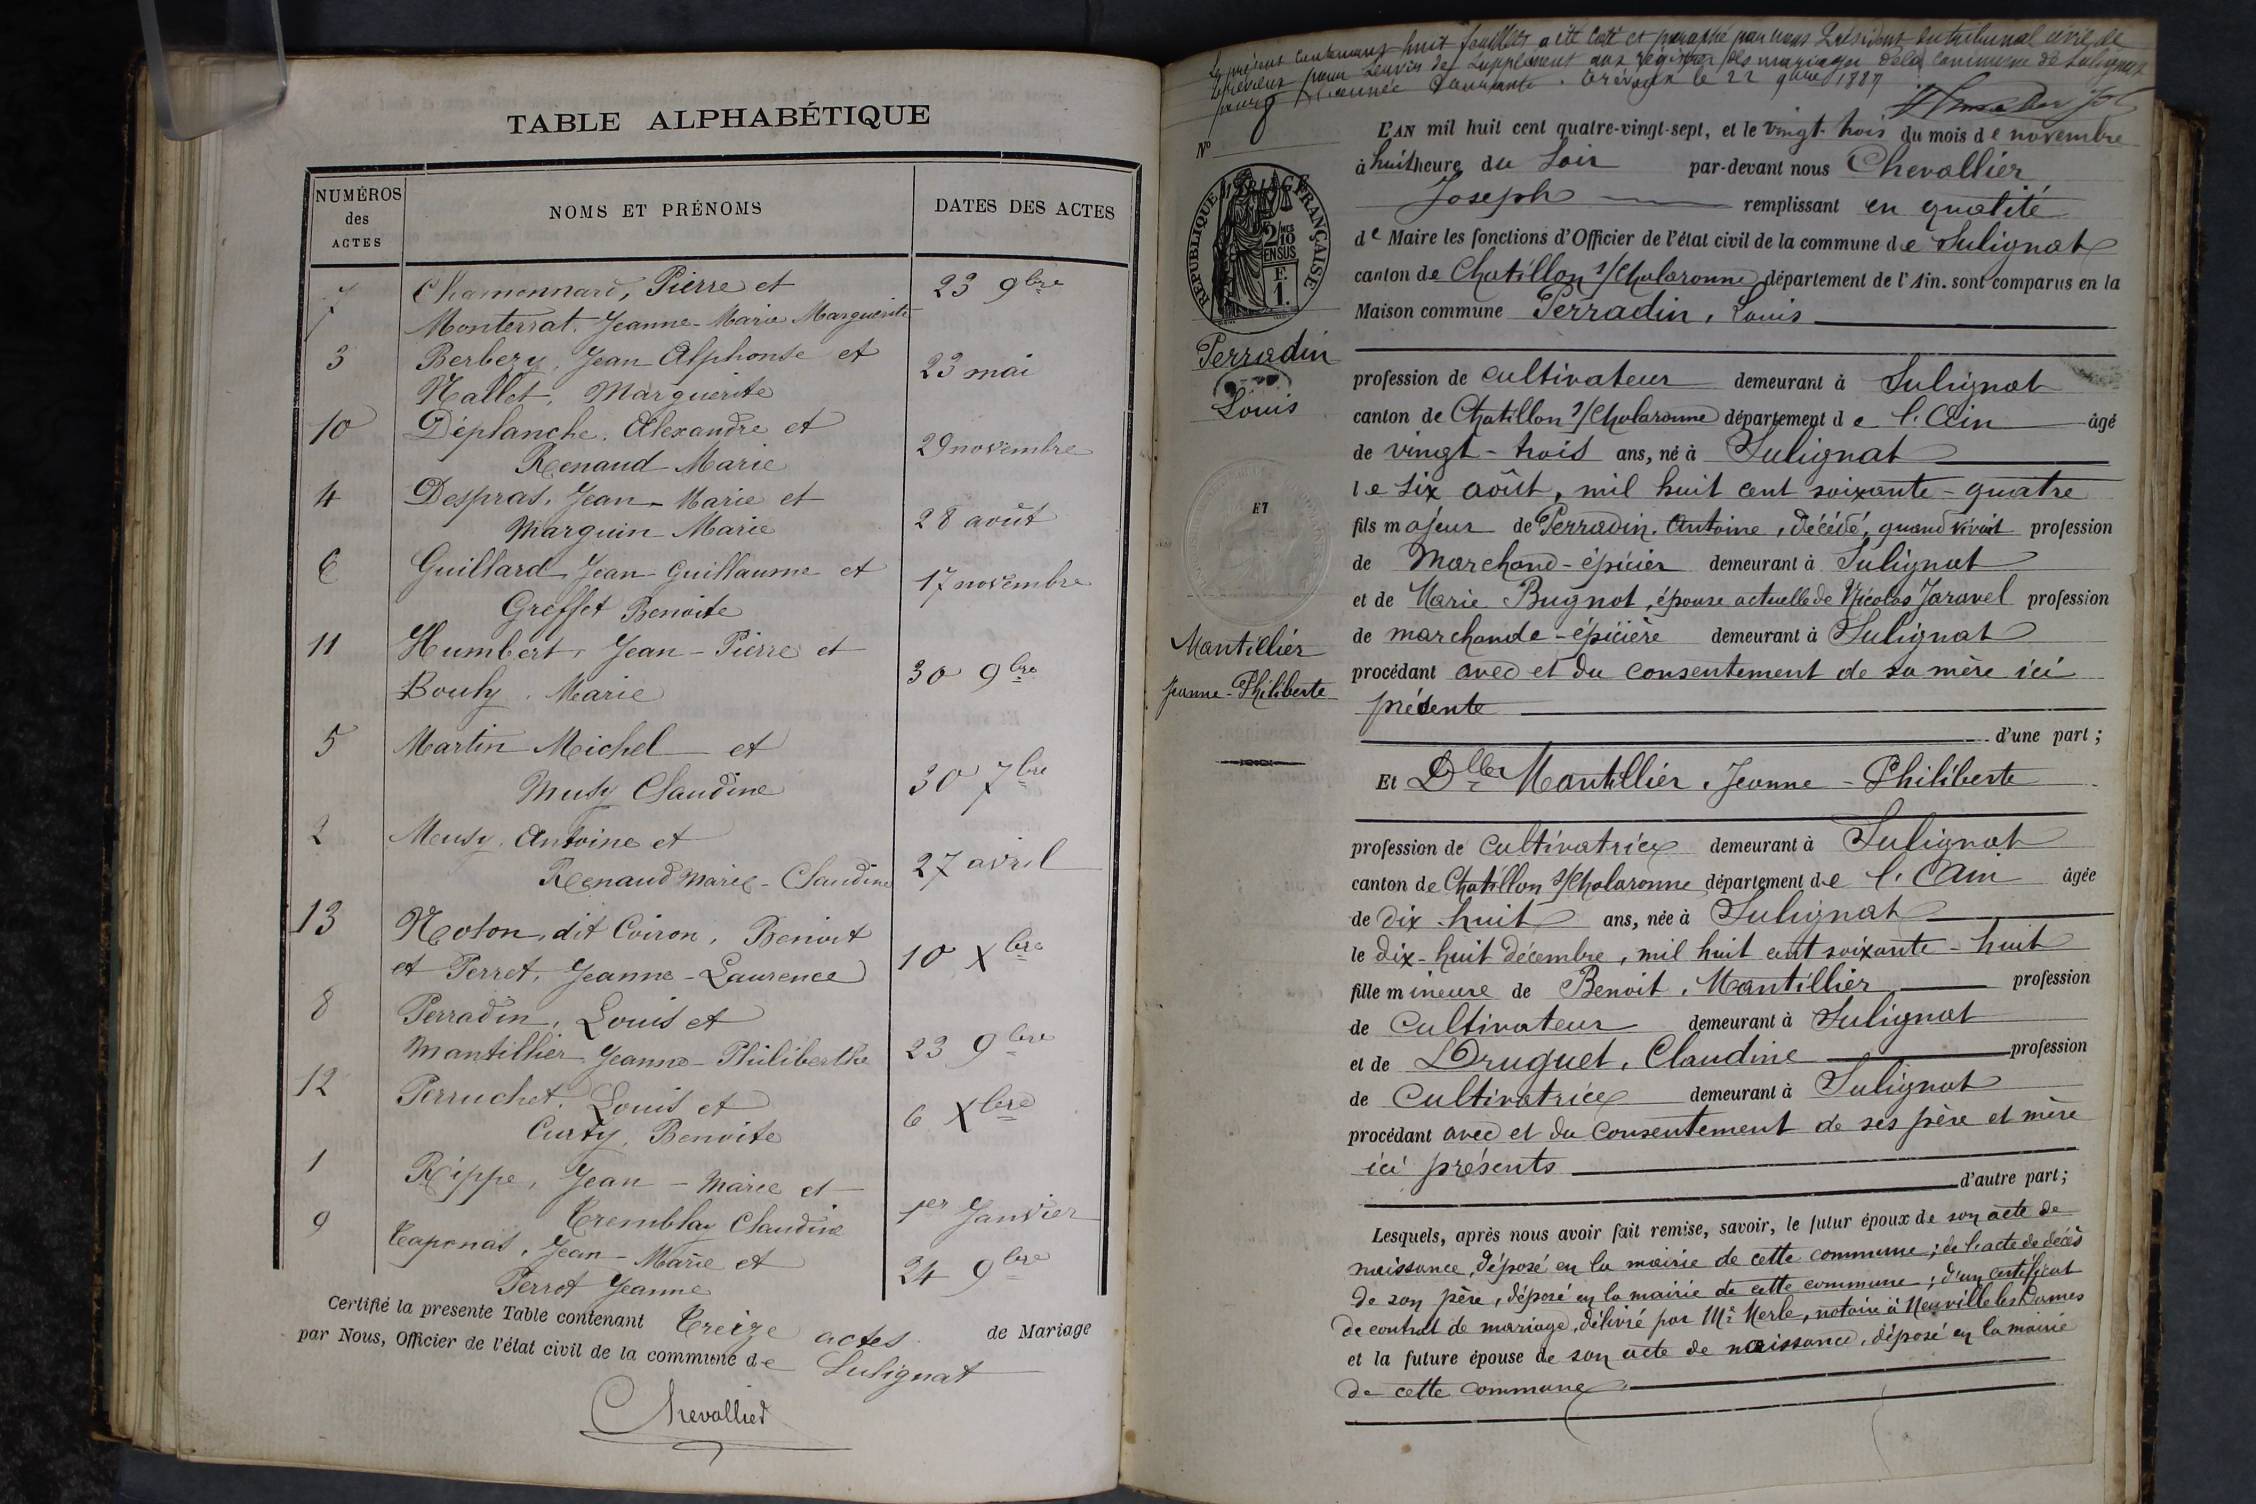 TABLE ALPHABÉTIQUE
NUMÉROS des ACTES
NOMS ET PRÉNOMS
DATES DES ACTES
7 Chamonnard, Pierre et 23 9bre
Monterrat, Jeanne-Marie Marguerite
3 Berbezy, Jean Alphonse et 23 mai
Nallet, Marguerite
10 Déplanche, Alexandre et 29 novembre
Renaud Marie
4 Despras, Jean-Marie et 28 août
Marguin Marie
6 Guillard, Jean-Guillaume et 17 novembre
Greffet Benoite
11 Humbert, Jean-Pierre et 30 9bre
Bouhy, Marie
5 Martin Michel et 30 7bre
Musy Claudine
2 Meusy, Antoine et 27 avril
Renaud Marie-Claudine
13 Noton, dit Coiron, Benoit 10 Xbre
et Perret, Jeanne-Laurence
8 Perradin, Louis et 23 9bre
Mantillier Jeanne-Philiberthe
12 Perruchet, Louis et 6 Xbre
Curty, Benoite
1 Rippe, Jean-Marie et 1er Janvier
Tremblay Claudine
9 Taponas, Jean-Marie et 24 9bre
Perrot Jeanne
Certifié la presente Table contenant Treize actes de Mariage
par Nous, Officier de l'état civil de la commune de Sulignat
Chevallier
Le présent contenant huit feuilles a été coté et paraphé par nous Président du tribunal civil de
Trévoux pour servir de supplément aux registres des mariages de la commune de Sulignat
pour l'année courante. Trévoux le 22 9bre 1887
No 8
RÉPUBLIQUE FRANÇAISE
2/10
EN SUS
F.
1.
Perradin
Louis
ET
Mantillier
Jeanne-Philiberte
L'AN mil huit cent quatre-vingt-sept, et le vingt-trois du mois de novembre
à huit heure du soir par-devant nous Chevallier
Joseph remplissant en qualité
de Maire les fonctions d'Officier de l'état civil de la commune de Sulignat
canton de Chatillon s/Chalaronne département de l'Ain. sont comparus en la
Maison commune Perradin, Louis
profession de cultivateur demeurant à Sulignat
canton de Chatillon s/Chalaronne département de l'Ain âgé
de vingt-trois ans, né à Sulignat
le six août, mil huit cent soixante-quatre
fils majeur de Perradin Antoine, décédé, quand vivait profession
de Marchand-épicier demeurant à Sulignat
et de Marie Bugnot, épouse actuelle de Nicolas Jaravel profession
de marchande-épicière demeurant à Sulignat
procédant avec et du consentement de sa mère ici
présente
d'une part;
Et Dlle Mantillier, Jeanne-Philiberte
profession de cultivatrice demeurant à Sulignat
canton de Chatillon s/Chalaronne département de l'Ain âgée
de dix-huit ans, née à Sulignat
le dix-huit décembre, mil huit cent soixante-huit
fille mineure de Benoit, Mantillier profession
de cultivateur demeurant à Sulignat
et de Druguet, Claudine profession
de cultivatrice demeurant à Sulignat
procédant avec et du consentement de ses père et mère
ici présents
d'autre part;
Lesquels, après nous avoir fait remise, savoir, le futur époux de son acte de
naissance, déposé en la mairie de cette commune; de l'acte de décès
de son père, déposé en la mairie de cette commune; d'un certificat
de contrat de mariage, délivré par Me Merle, notaire à Neuville les Dames
et la future épouse de son acte de naissance, déposé en la mairie
de cette commune